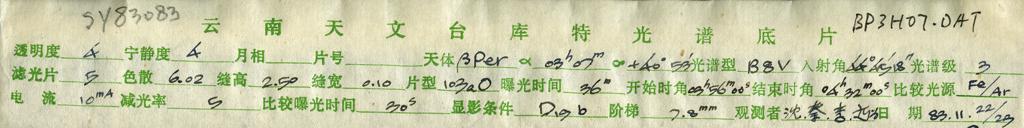 SY83083 云南天文台库特光谱底片 BP3H07.DAT
透明度 4 宁静度 4 月相 片号 天体 βPer α 03h 07m α +40° 53' 光谱型 B8V 入射角 光谱级 3
滤光片 5 色散 6.02 缝高 2.50 缝宽 0.10 片型 103aO 曝光时间 36m 开始时角 03h56m00s 结束时角 04h32m00s 比较光源 Fe/Ar
电流 10mA 减光率 5 比较曝光时间 30s 显影条件 D19b 阶梯 7.8mm 观测者 沈. 日期 83.11.22/23